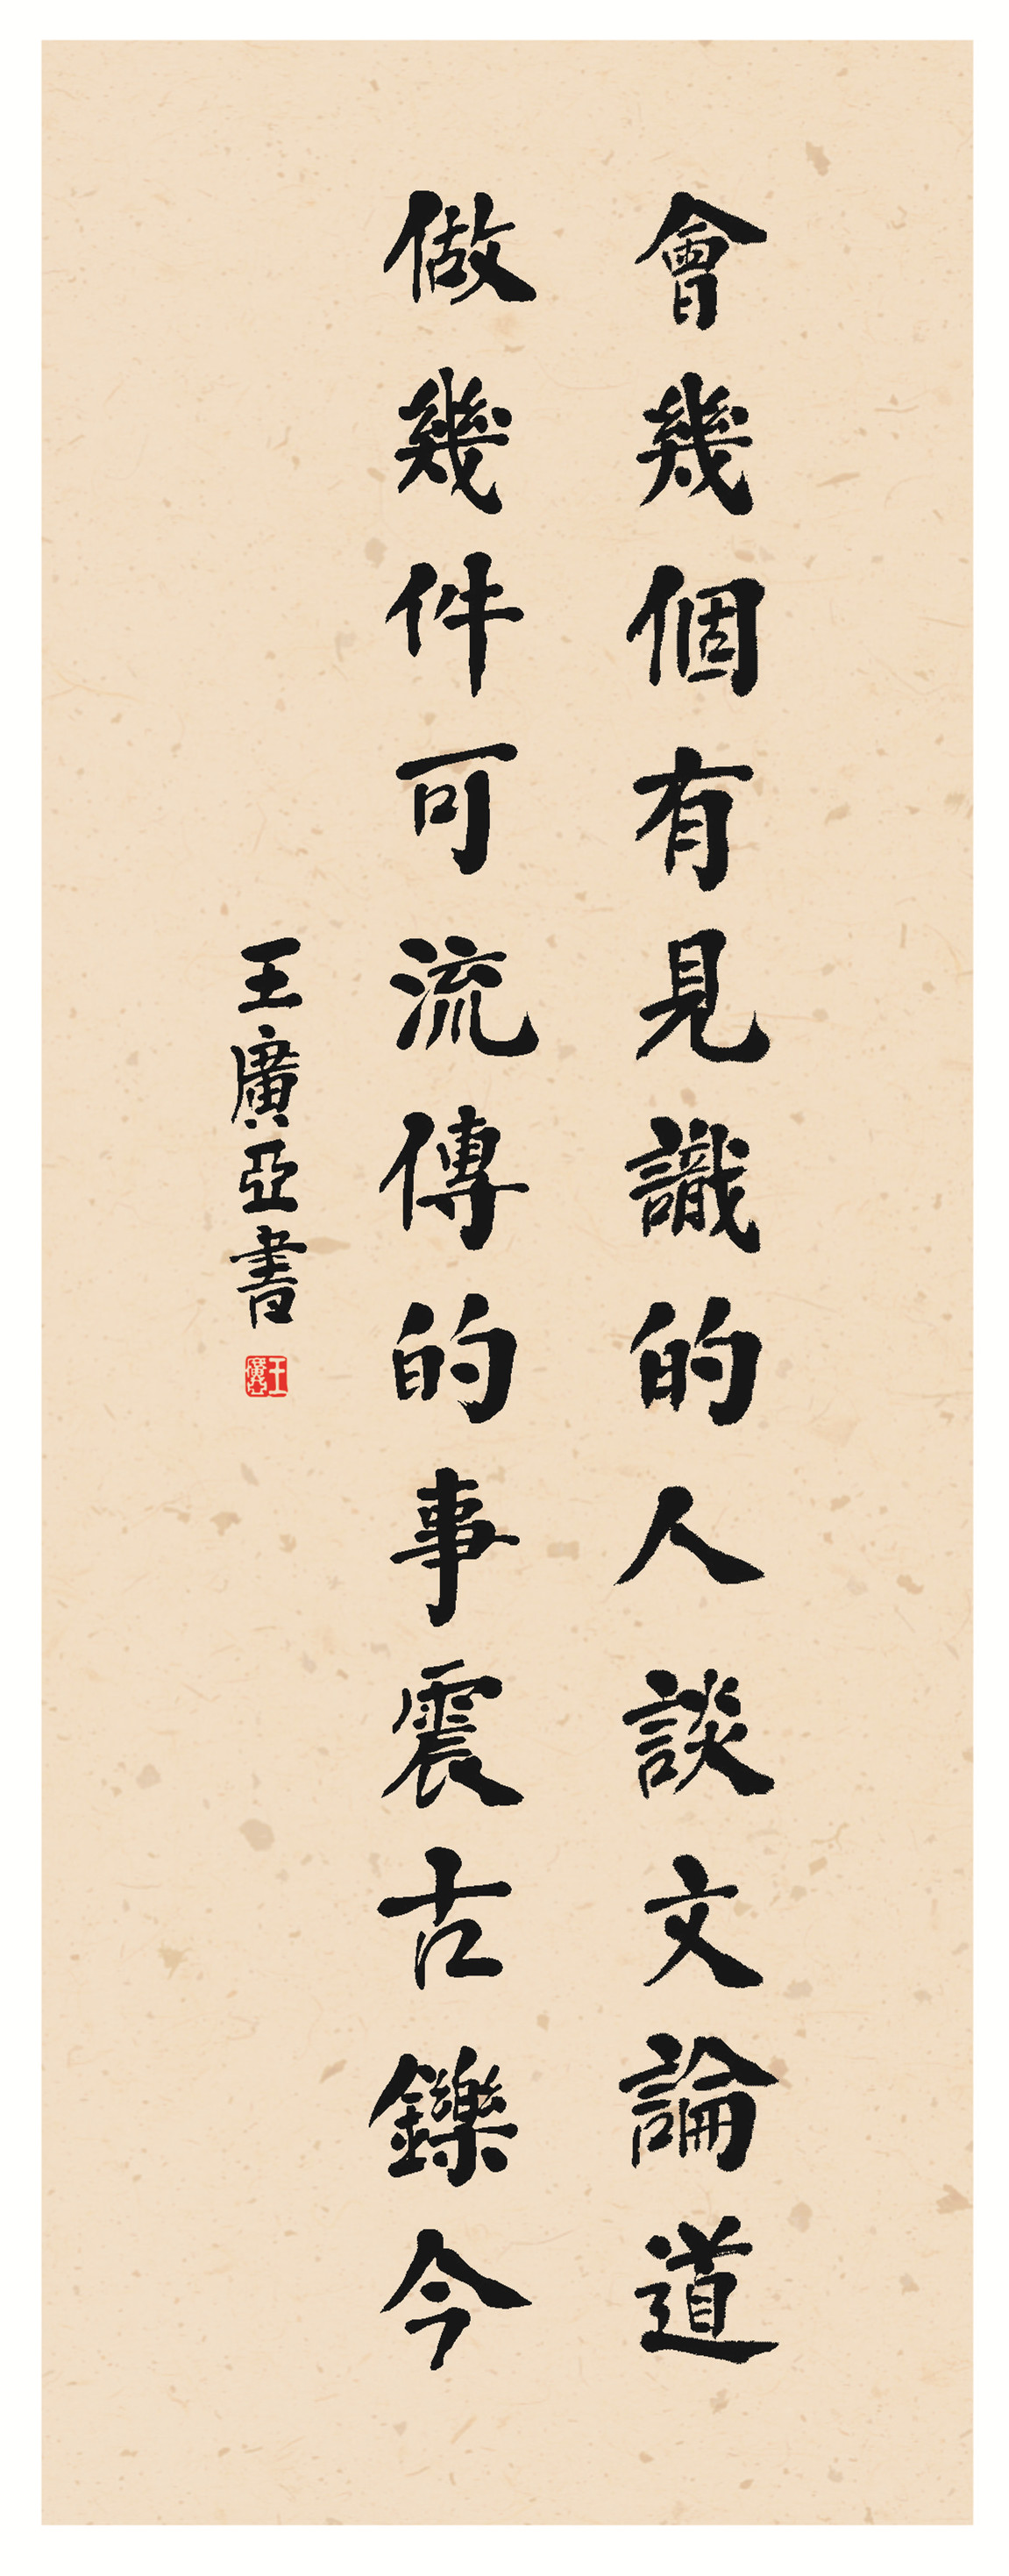 會幾個有見識的人談文論道
做幾件可流傳的事震古鑠今
王廣亞書
王廣亞